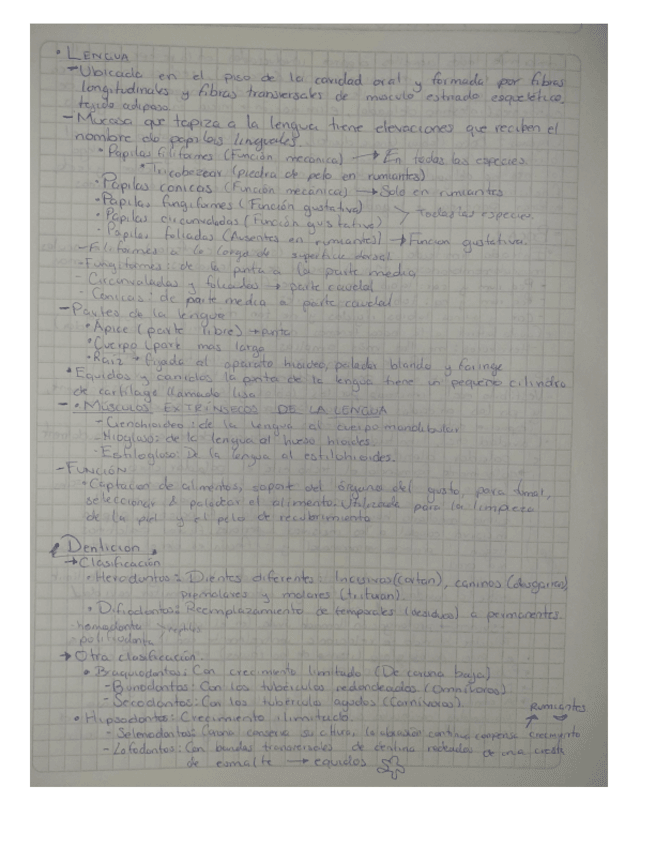 • LENGUA
- Ubicada en el piso de la cavidad oral y formada por fibras
longitudinales y fibras transversales de musculo estriado esquelético,
tejido adiposo
- Mucosa que tapiza a la lengua tiene elevaciones que reciben el
nombre de papilas linguales.
• Papilas filiformes (Función mecanica) → En todas las especies
• Tricobezoar (piedra de pelo en rumiantes)
• Papilas conicas (Función mecanica) → Solo en rumiantes
• Papilas fungiformes (Función gustativa)
• Papilas circunvaladas (Función gustativa) > Todas las especies.
- Papilas foliadas (Ausentes en rumiantes) → Funcion gustativa.
- Filiformes a lo largo de superficie dorsal
- Fungiformes: de la punta a la parte media
- Circunvaladas y foliadas → parte caudal
- Conicas: de parte media a parte caudal
- Partes de la lengua
• Apice (parte libre) → punta
• Cuerpo (parte mas larga
• Raiz → fijada al aparato hioideo, paladar blando y faringe
• Equidos y canidos la punta de la lengua tiene un pequeño cilindro
de cartilago llamado lisa
- • MÚSCULOS EXTRINSECOS DE LA LENGUA
- Genohioideo: de la lengua al cuerpo mandibular
- Hiogloso: de la lengua al hueso hioides
- Estilogloso: De la lengua al estilohioides.
- FUNCIÓN
• Captacion de alimentos, soport del órgano del gusto, para
seleccionar & paladear el alimento. Utilizada para la limpieza
de la piel y el pelo de recubrimiento
Denticion
→ Clasificación
• Herodontos: Dientes diferentes: Incisivos (cortan), caninos (desgarran),
premolares y molares (trituran).
• Difiodontos: Reemplazamiento de temporales (desiduos) a permanentes.
- homodonto
- polifiodonto > reptiles
→ Otra clasificación
• Braquiodontos: Con crecimiento limitado (De corona baja)
- Bunodontos: Con los tubérculos redondeados (Omnívoros)
- Secodontos: Con los tubérculo agudos (Carnívoros).
• Hipsodontos: Crecimiento ilimitado. Rumiantes
- Selenodontos: Corona conserva su altura, la abrasión continua compensa crecimiento
- Lofodontos: Con bandas transversales de dentina rodeadas de una cresta
de esmalte → equidos